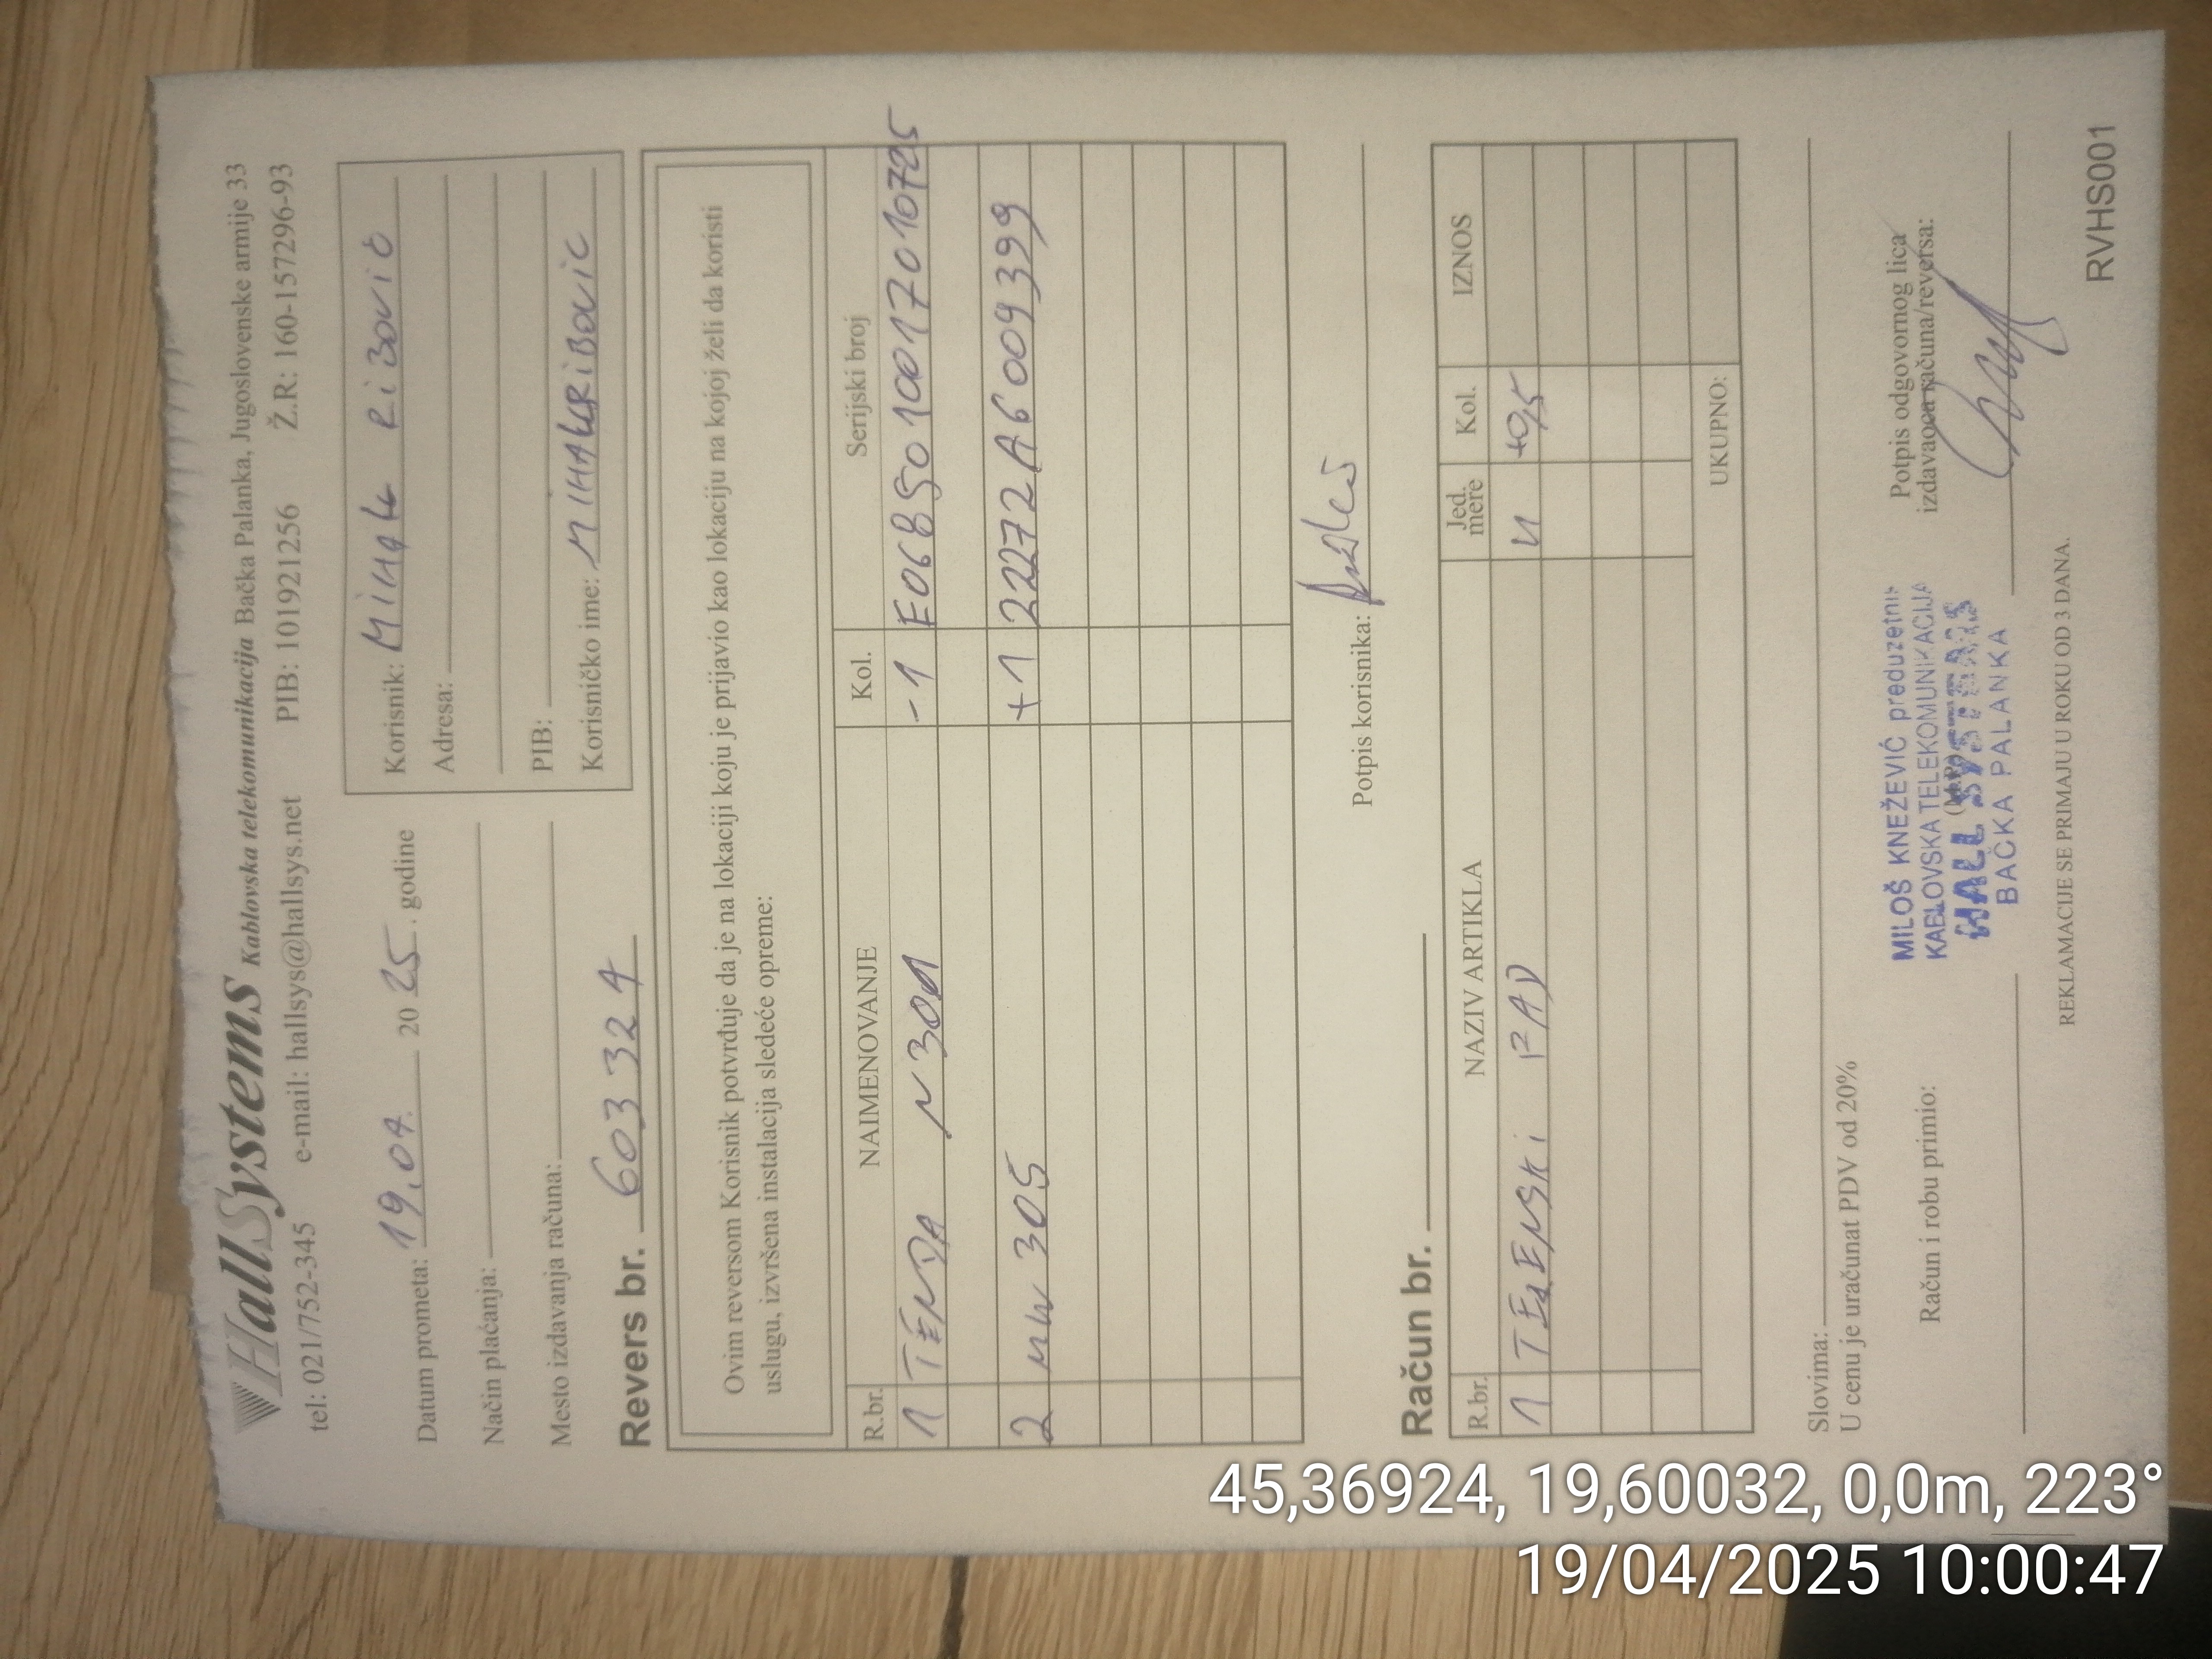 HallSystems Kablovska telekomunikacija Bačka Palanka, Jugoslovenske armije 33
tel: 021/752-345 e-mail: hallsys@hallsys.net PIB: 101921256 Ž.R: 160-157296-93
Datum prometa: 19.04. 2025. godine
Način plaćanja:
Mesto izdavanja računa:
Korisnik: Mihalj Ribović
Adresa:
PIB:
Korisničko ime: MIHALJRIBOVIC
Revers br. 603324
Ovim reversom Korisnik potvrđuje da je na lokaciji koju je prijavio kao lokaciju na kojoj želi da koristi
uslugu, izvršena instalacija sledeće opreme:
R.br. NAIMENOVANJE Kol. Serijski broj
1 TENDA N301 -1 E0685010017010725
2 MW 305 +1 22272A6009399
Potpis korisnika:
Račun br.
R.br. NAZIV ARTIKLA Jed. mere Kol. IZNOS
1 TERENSKI RAD H +0,5
UKUPNO:
Slovima:
U cenu je uračunat PDV od 20%
Račun i robu primio:
MILOŠ KNEŽEVIĆ preduzetnik
KABLOVSKA TELEKOMUNIKACIJA
HALL SYSTEMS
BAČKA PALANKA
Potpis odgovornog lica
izdavaoca računa/reversa:
REKLAMACIJE SE PRIMAJU U ROKU OD 3 DANA.
RVHS001
45,36924, 19,60032, 0,0m, 223°
19/04/2025 10:00:47